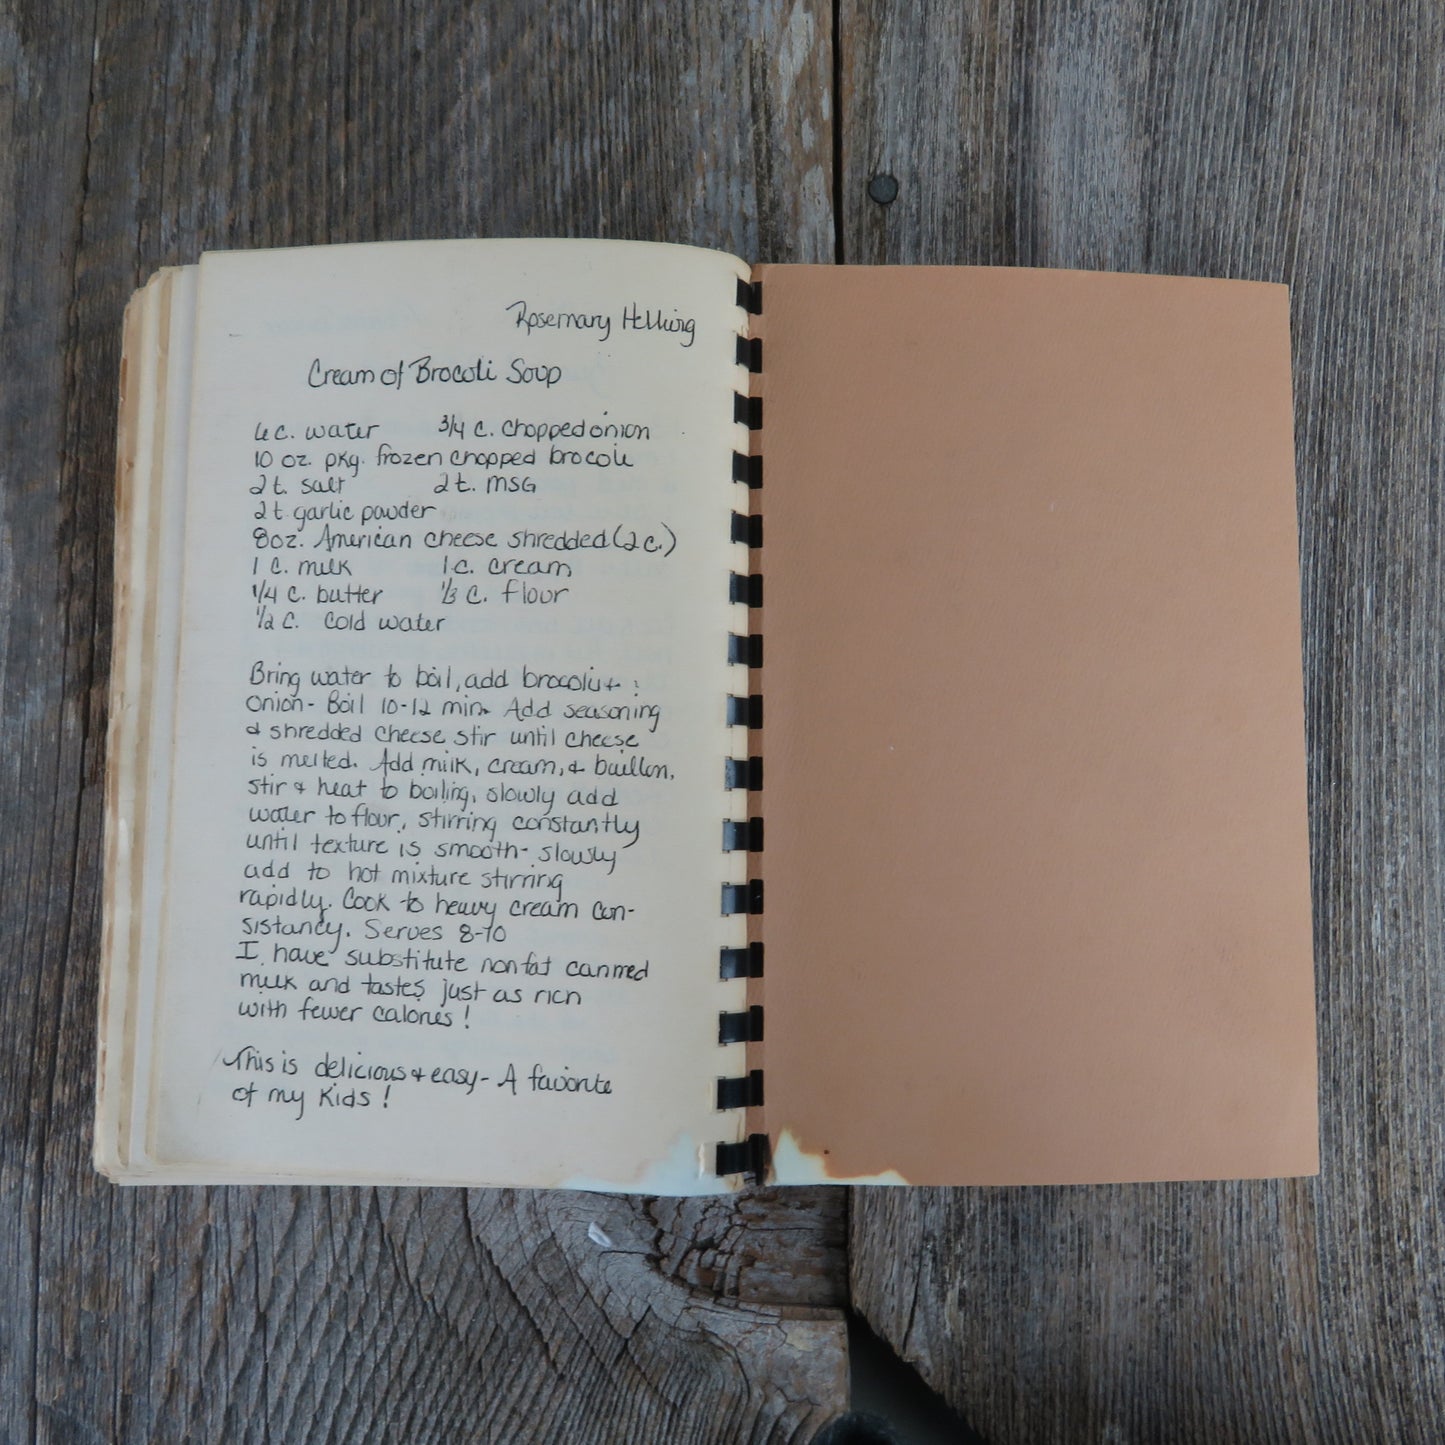 Rosemary Hellwig
Cream of Brocoli Soup
6 c. water 3/4 c. chopped onion
10 oz. pkg. frozen chopped brocoli
2 t. salt 2 t. MSG
2 t garlic powder
8 oz. American cheese shredded (2 c.)
1 c. milk 1 c. cream
1/4 c. butter 1/3 c. flour
1/2 c. cold water
Bring water to boil, add brocoli +
onion - Boil 10-12 min. Add seasoning
& shredded cheese stir until cheese
is melted. Add milk, cream, +
stir + heat to boiling, slowly add
water to flour, stirring constantly
until texture is smooth - slowly
add to hot mixture stirring
rapidly. Cook to heavy cream con-
sistancy. Serves 8-10
I have substitute nonfat canned
milk and tastes just as rich
with fewer calories!
This is delicious + easy - A favorite
of my kids!